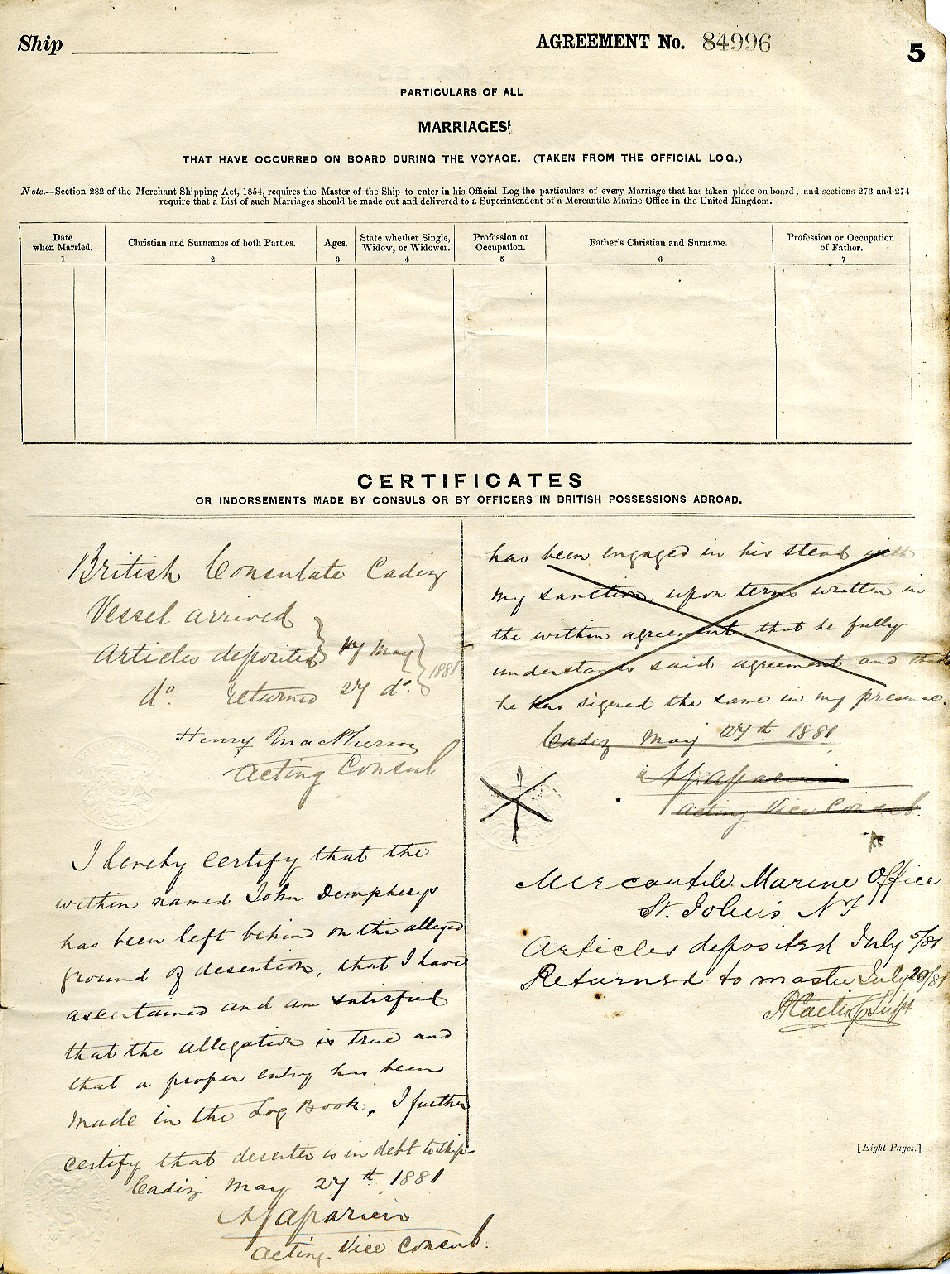 Ship
AGREEMENT No. 84996
5
PARTICULARS OF ALL
MARRIAGES
THAT HAVE OCCURRED ON BOARD DURING THE VOYAGE. (TAKEN FROM THE OFFICIAL LOG.)
Note.—Section 282 of the Merchant Shipping Act, 1854, requires the Master of the Ship to enter in his Official Log the particulars of every Marriage that has taken place on board, and sections 273 and 274
require that a List of such Marriages should be made out and delivered to a Superintendent of a Mercantile Marine Office in the United Kingdom.
Date when Married. 1
Christian and Surnames of both Parties. 2
Ages. 3
State whether Single, Widow, or Widower. 4
Profession or Occupation. 5
Father's Christian and Surname. 6
Profession or Occupation of Father. 7
CERTIFICATES
OR INDORSEMENTS MADE BY CONSULS OR BY OFFICERS IN BRITISH POSSESSIONS ABROAD.
British Consulate Cadiz
Vessel arrived
Articles deposited May 1881
do. returned 27 do.
Henry MacPherson
Acting Consul
I hereby certify that the
within named John Dempherys
has been left behind on the alleged
ground of desertion, that I have
ascertained and am satisfied
that the allegation is true and
that a proper entry has been
made in the Log Book, I further
certify that deserter is in debt to ship
Cadiz May 27th 1881
Acting Vice Consul.
has been engaged in his stead with
my sanction upon terms written in
the within agreement that he fully
understands said agreement and that
he has signed the same in my presence.
Cadiz May 27th 1881
Acting Vice Consul.
Mercantile Marine Office
St. John's NF
Articles deposited July 5/81
Returned to master July 20/81
[Eight Pages.]